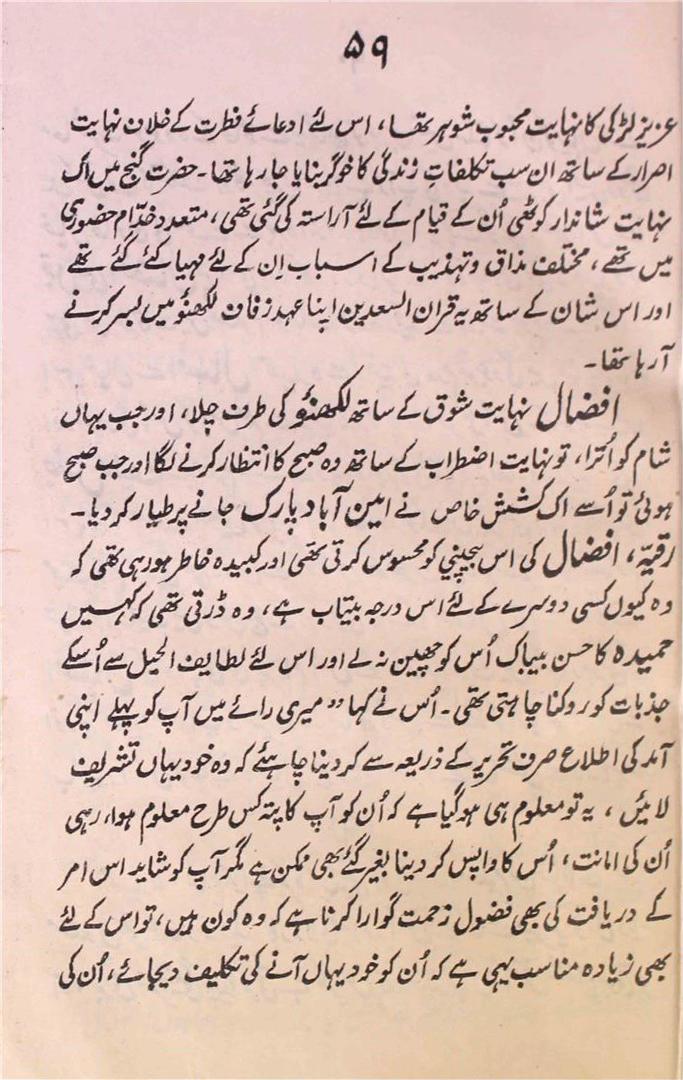 ۵۹
عزیز لڑکی کا نہایت محبوب شوہر تھا، اس لئے ادعائے فطرت کے خلاف نہایت
اصرار کے ساتھ ان سب تکلفاتِ زندگی کا خوگر بنایا جا رہا تھا۔ حضرت گنج میں اک
نہایت شاندار کوٹھی اُن کے قیام کے لئے آراستہ کی گئی تھی، متعدد خدّام حضوری
میں تھے، مختلف مذاق و تہذیب کے اسباب اِن کے لئے مہیا کئے گئے تھے
اور اس شان کے ساتھ یہ قران السعدین اپنا عہد زفاف لکھنؤ میں بسر کرنے
آ رہا تھا۔
افضال نہایت شوق کے ساتھ لکھنؤ کی طرف چلا، اور جب یہاں
شام کو اُترا، تو نہایت اضطراب کے ساتھ وہ صبح کا انتظار کرنے لگا اور جب صبح
ہوئی تو اُسے اک کشش خاص نے امین آباد پارک جانے پر طیار کر دیا۔
رقیہ، افضال کی اس بیچینی کو محسوس کرتی تھی اور کبیدہ خاطر ہو رہی تھی کہ
وہ کیوں کسی دوسرے کے لئے اس درجہ بیتاب ہے، وہ ڈرتی تھی کہ کہیں
حمیدہ کا حسن بیباک اُس کو چھین نہ لے اور اس لئے لطایف الحیل سے اُسکے
جذبات کو روکنا چاہتی تھی۔ اُس نے کہا ”میری رائے میں آپ کو پہلے اپنی
آمد کی اطلاع صرف تحریر کے ذریعہ سے کر دینا چاہئے کہ وہ خود یہاں تشریف
لائیں، یہ تو معلوم ہی ہو گیا ہے کہ اُن کو آپ کا پتہ کس طرح معلوم ہوا، رہی
اُن کی امانت، اُس کا واپس کر دینا بغیر گئے بھی ممکن ہے مگر آپ کو شاید اس امر
کے دریافت کی بھی فضول زحمت گوارا کرنا ہے کہ وہ کون ہیں، تو اس کے لئے
بھی زیادہ مناسب یہی ہے کہ اُن کو خود یہاں آنے کی تکلیف دیجائے، اُن کی